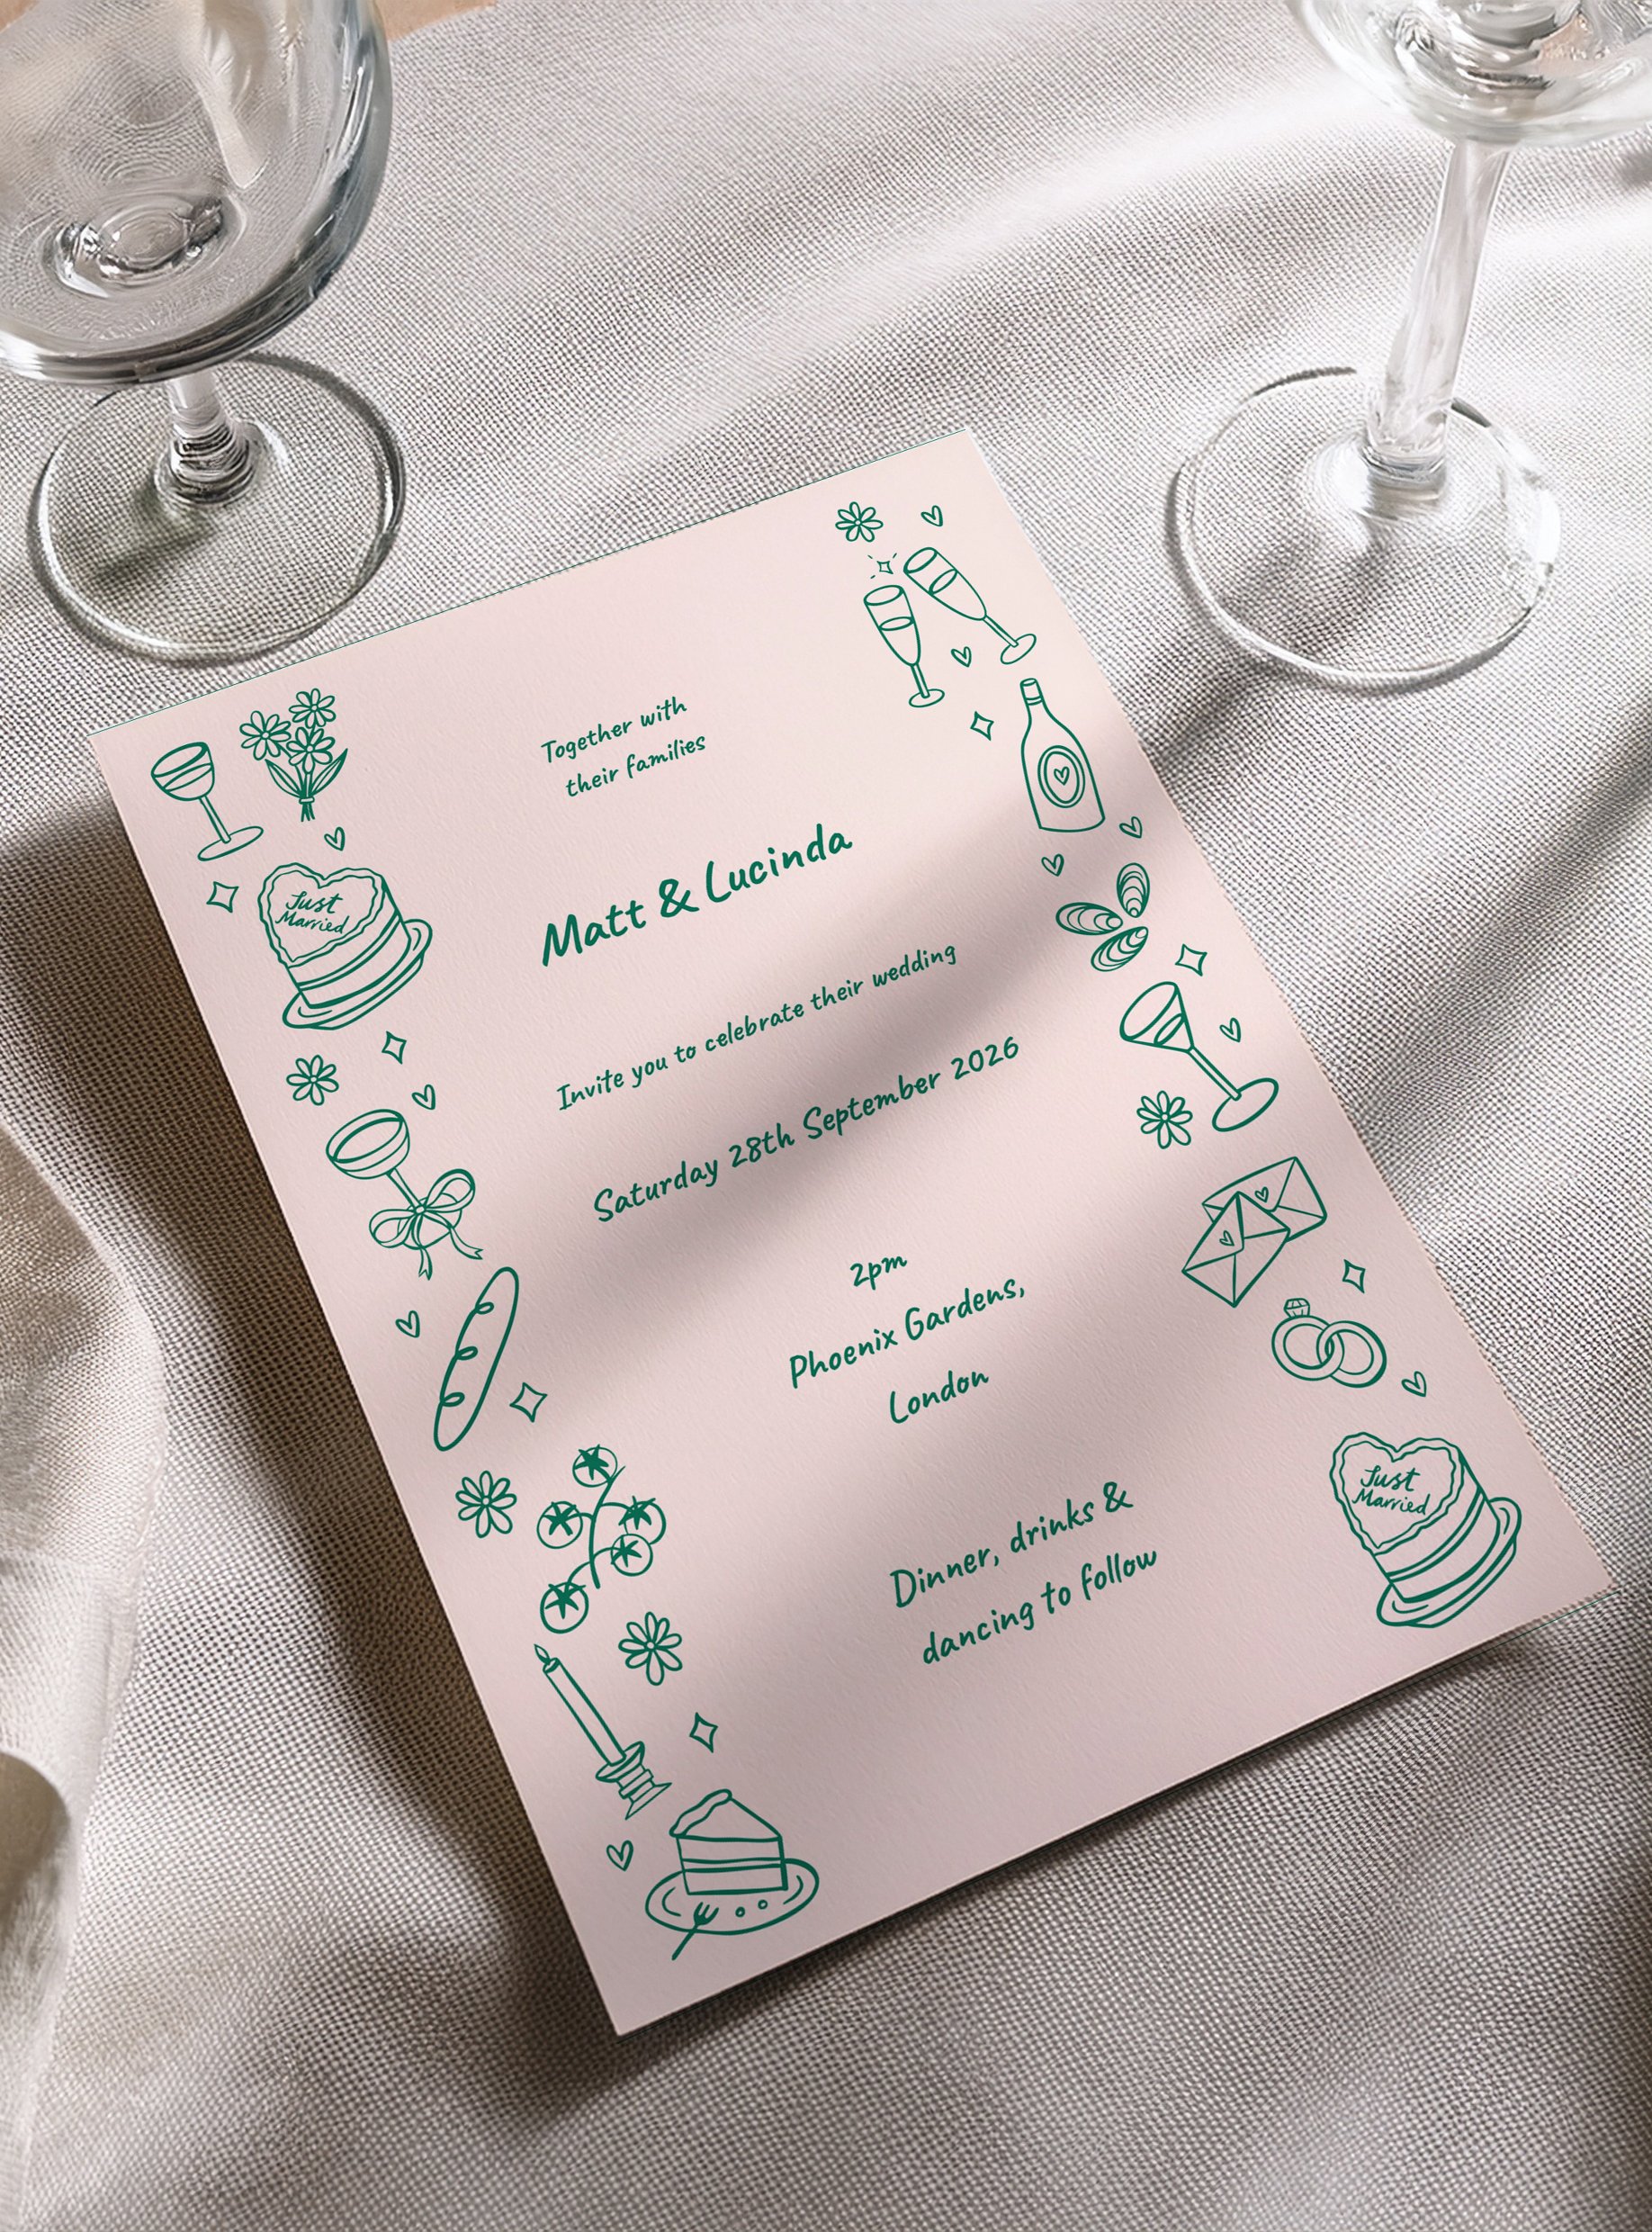 Together with
their families
Matt & Lucinda
Invite you to celebrate their wedding
Saturday 28th September 2026
2pm
Phoenix Gardens,
London
Dinner, drinks &
dancing to follow
Just
Married
Just
Married